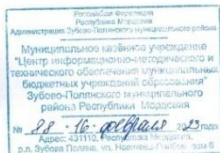 Российская Федерация
Республика Мордовия
Администрация Зубово-Полянского муниципального района
Муниципальное казённое учреждение
"Центр информационно-методического и
технического обеспечения муниципальных
бюджетных учреждений образования"
Зубово-Полянского муниципального
района Республики Мордовия
№ 88 - 16 - февраля 2023 года
Адрес: 431110, Республика Мордовия,
р.п. Зубова Поляна, ул.